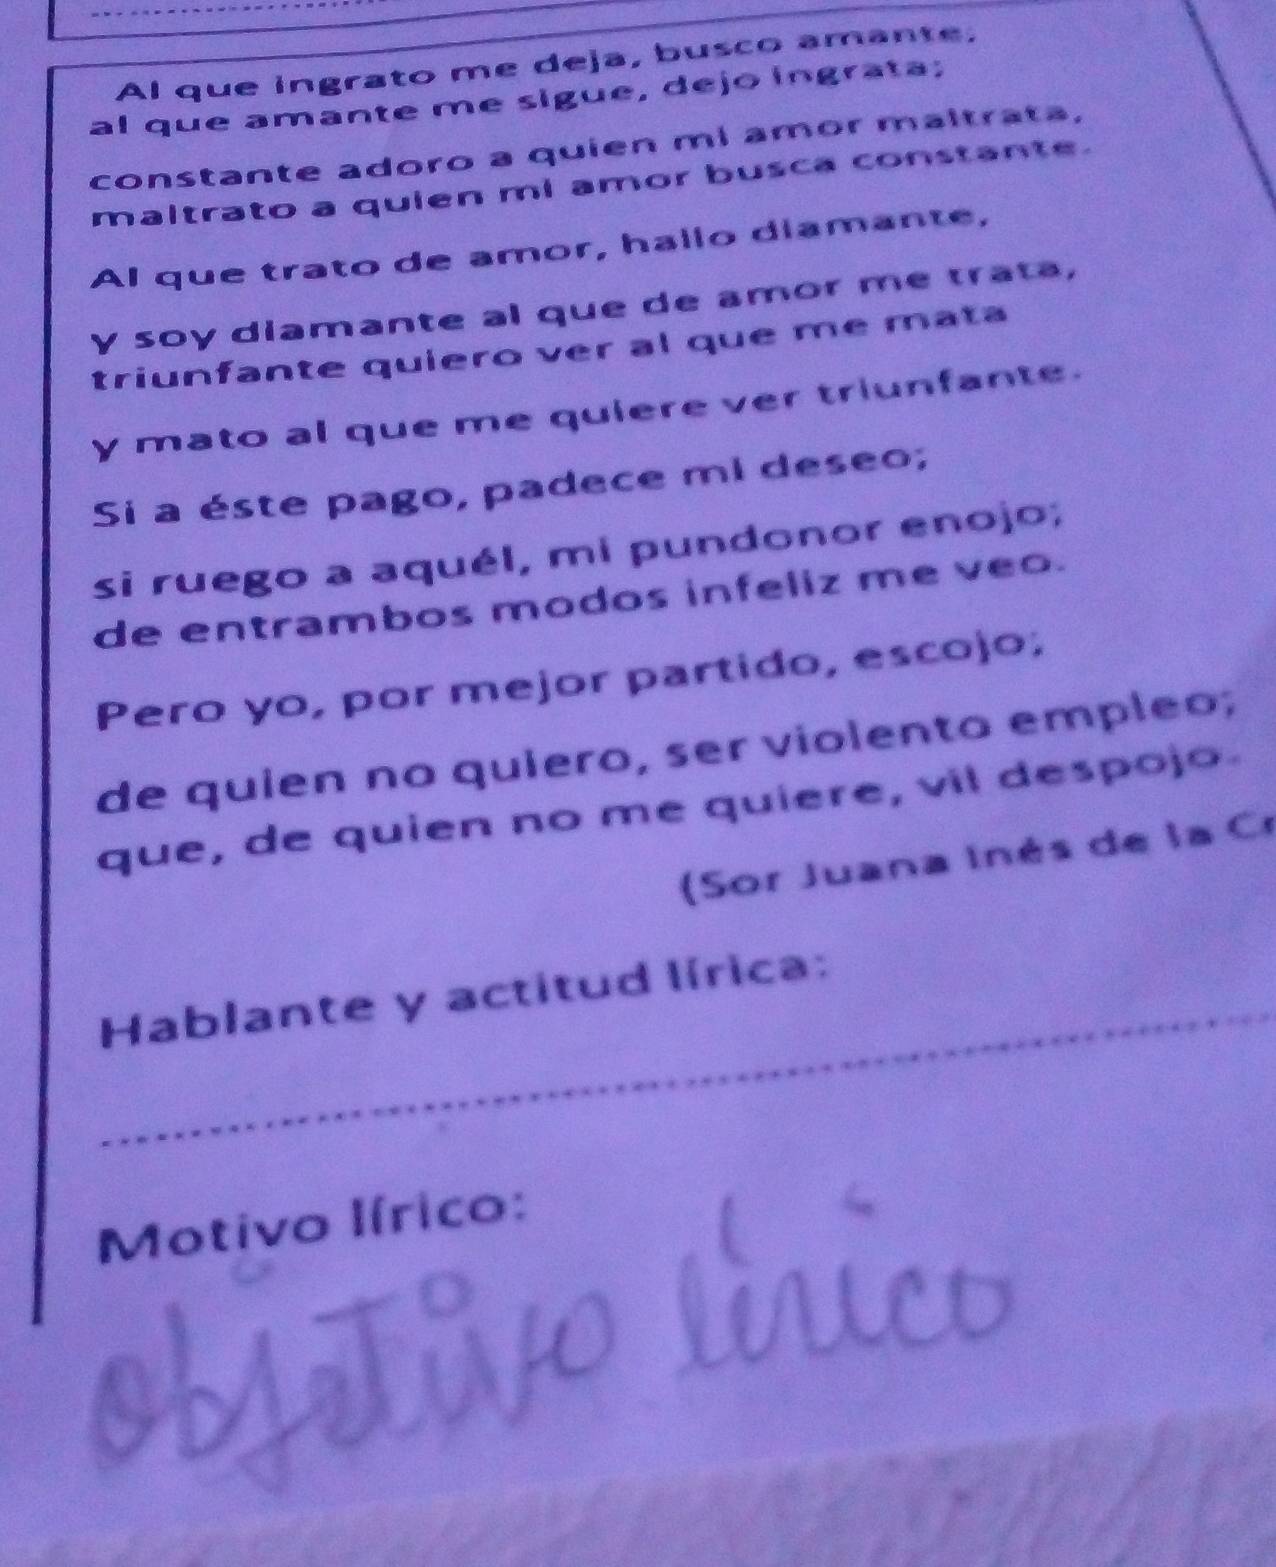 Al que ingrato me deja, busco amante;
al que amante me sigue, dejo ingrata;
constante adoro a quien mi amor maltrata,
maltrato a quien mi amor busca constante.
Al que trato de amor, hallo diamante,
y soy diamante al que de amor me trata,
triunfante quiero ver al que me mata
y mato al que me quiere ver triunfante.
Si a éste pago, padece mi deseo;
si ruego a aquél, mi pundonor enojo;
de entrambos modos infeliz me veo.
Pero yo, por mejor partido, escojo;
de quien no quiero, ser violento empleo;
que, de quien no me quiere, vil despojo.
(Sor Juana Inés de la Cr
Hablante y actitud lírica:
Motivo lírico:
objetivo lírico